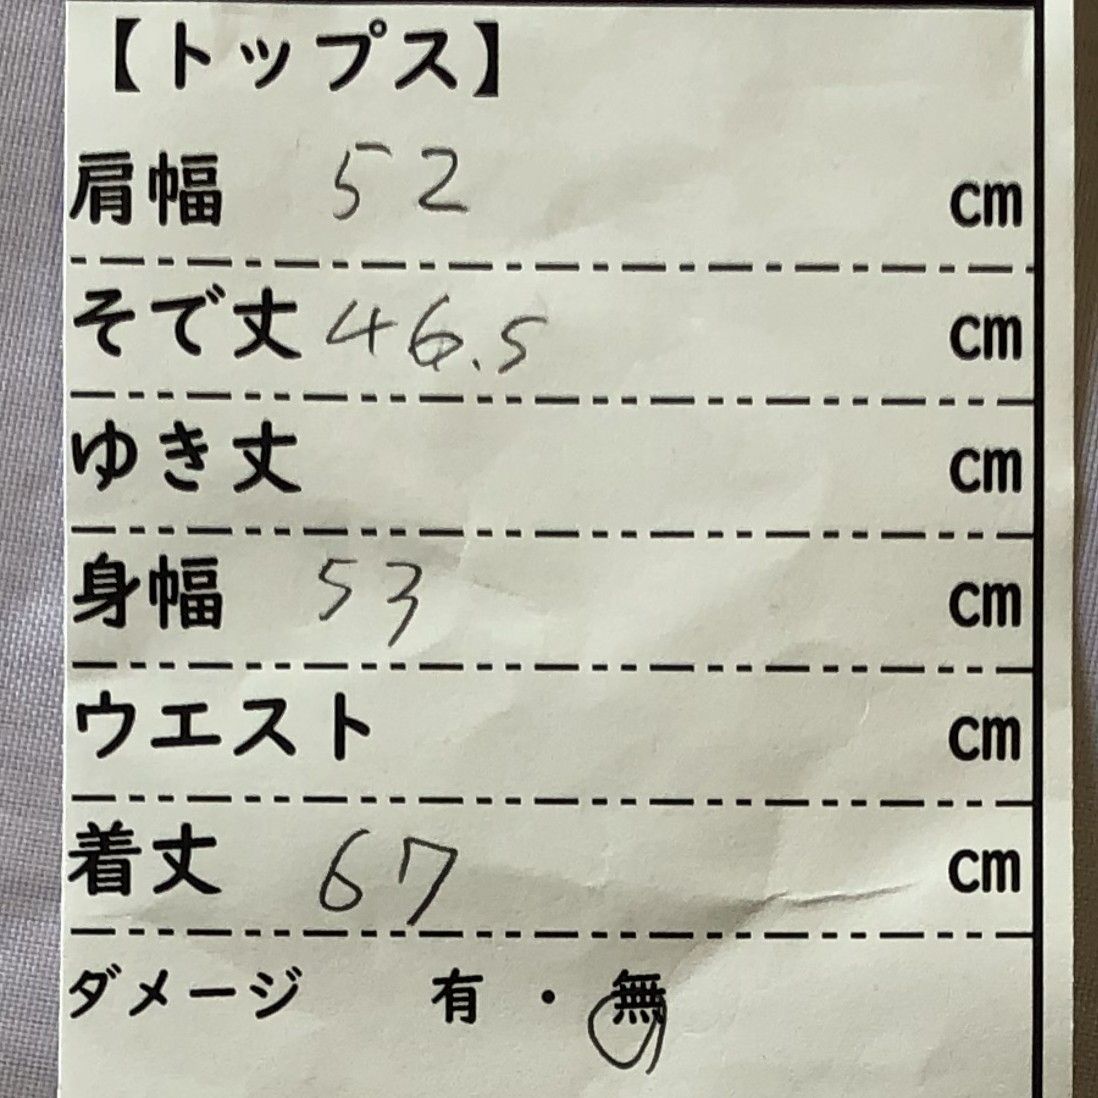 【トップス】
肩幅 52 cm
そで丈 46.5 cm
ゆき丈 cm
身幅 53 cm
ウエスト cm
着丈 67 cm
ダメージ 有・無